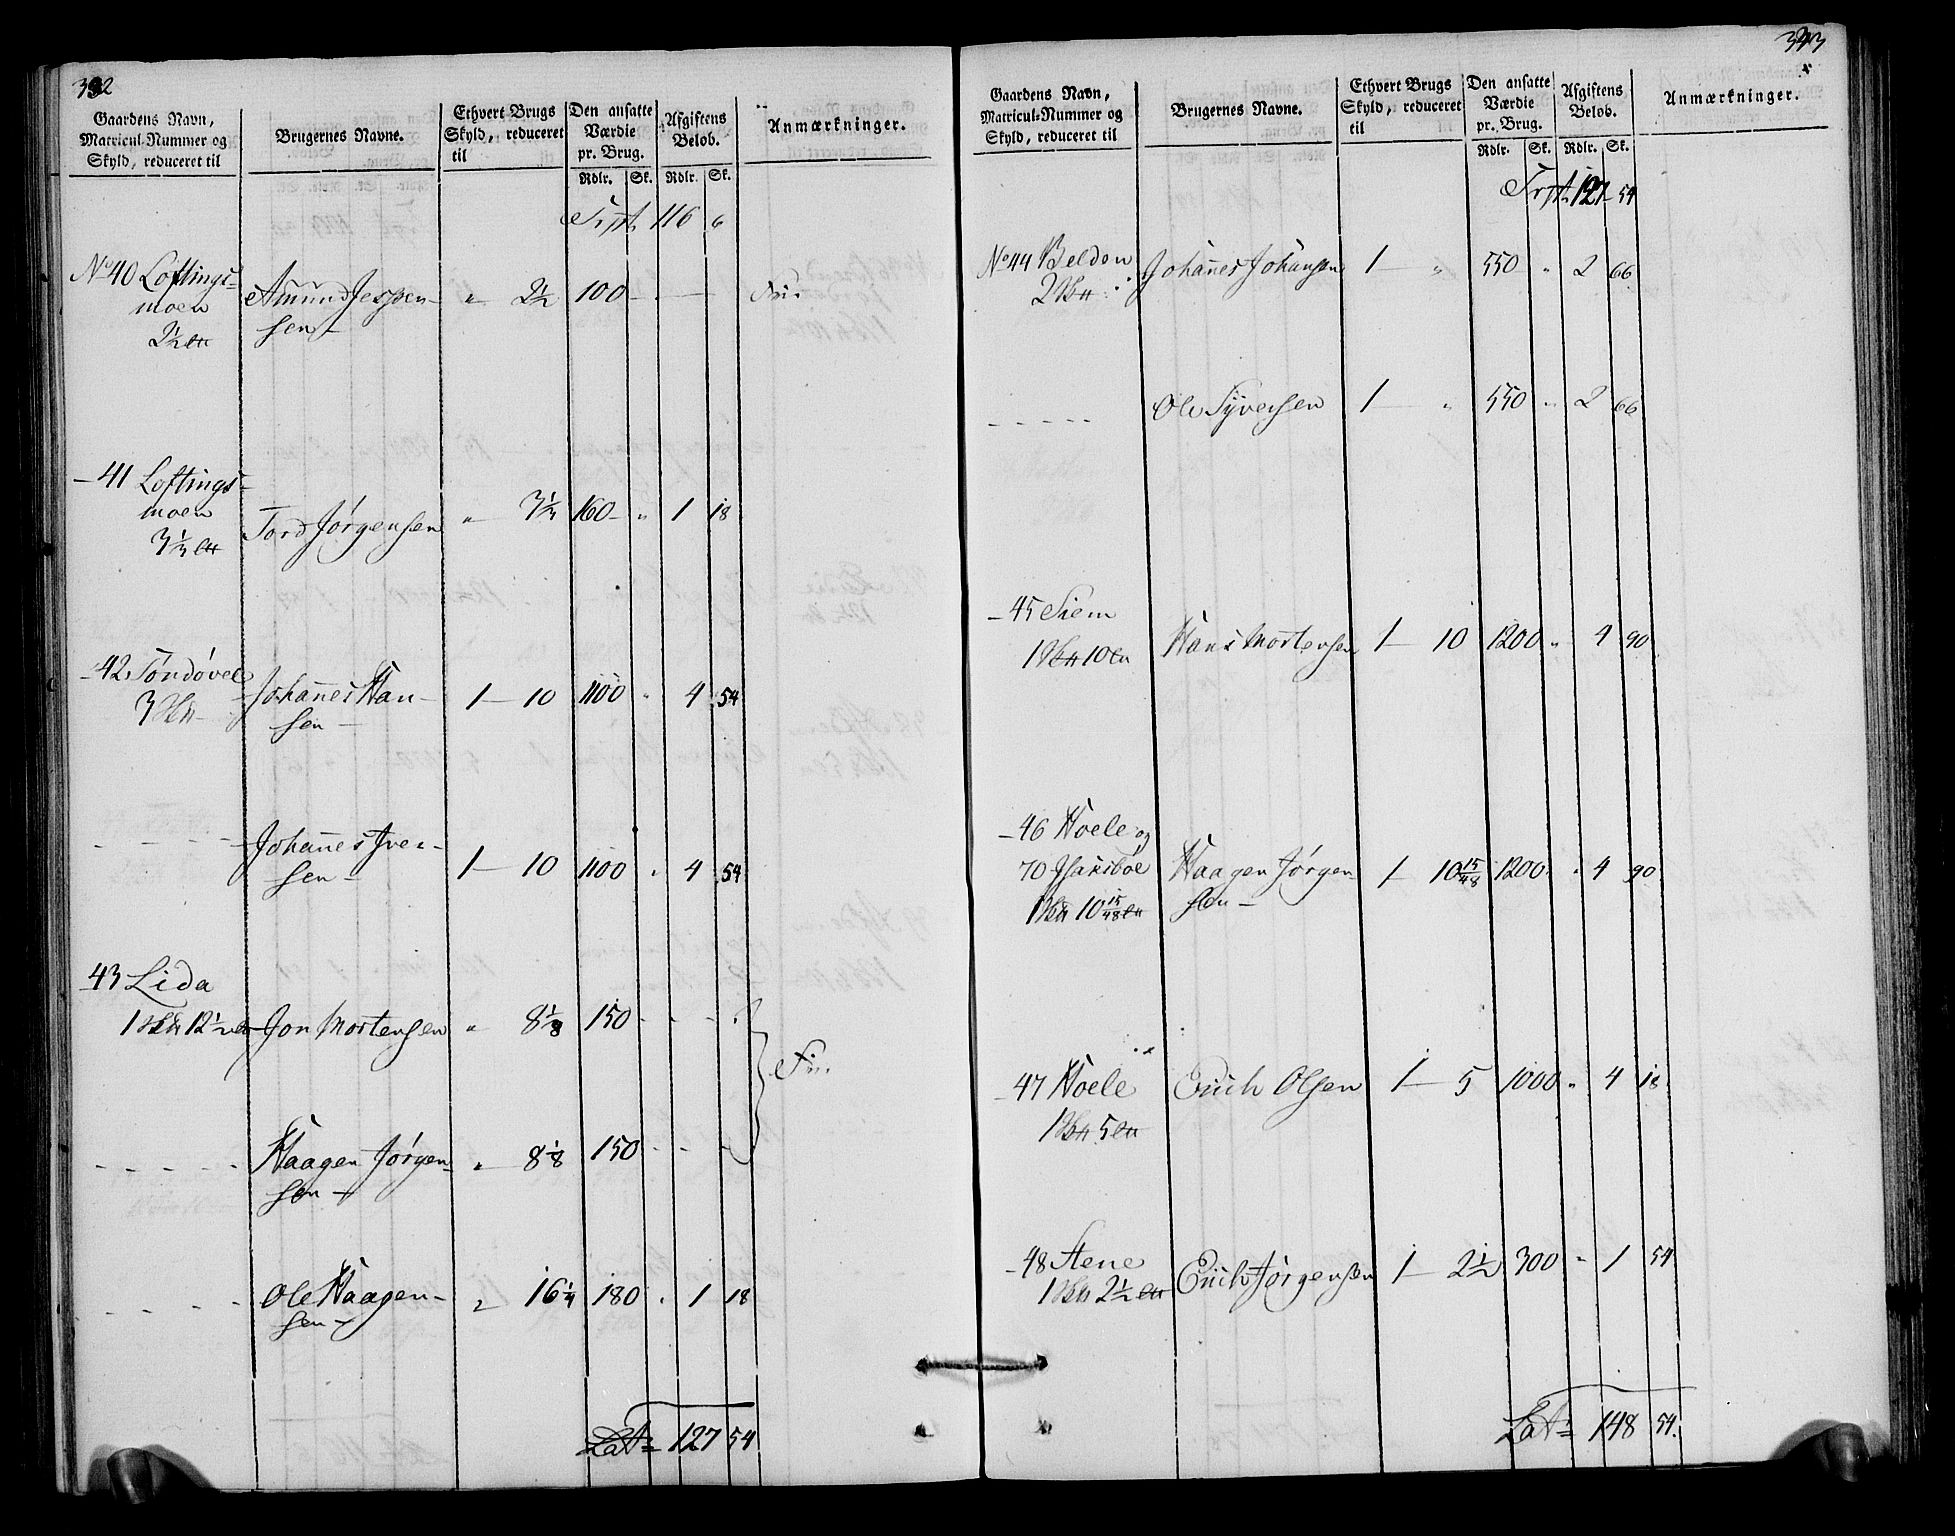 332
Gaardens Navn, Matricul-Nummer og Skyld, reduceret til
Brugernes Navne.
Ethvert Brugs Skyld, reduceret til
Den ansatte Værdie pr. Brug.
Afgiftens Belob.
Anmærkninger.
Rdlr. Sk. Rdlr. Sk.
Trpt. 116 6
No 40 Loftings-
moen
2½
Amund Jespen-
sen
" 2½ 100 - - —
Frie
- 41 Loftings-
moen
3⅓
Tord Jørgensen " 3⅓ 160 - " 1 18
- 42 Tøndøvel
3
Johannes Han-
sen
1 — 10 1100 " 4 54
- - - - - Johannes Iver-
sen
1 — 10 1100 " 4 54
- 43 Lida
1 12½ Jon Mortensen " 8⅛ 150 - - -
Frie
- - - - - Haagen Jørgen-
sen
" 8⅛ 150 - - -
- - - - - Ole Haagen-
sen
" 16¼ 180 " 1 18
Lat: 127 54
343
Gaardens Navn, Matricul-Nummer og Skyld, reduceret til
Brugernes Navne.
Ethvert Brugs Skyld, reduceret til
Den ansatte Værdie pr. Brug.
Afgiftens Belob.
Anmærkninger.
Rdlr. Sk. Rdlr. Sk.
Trpt. 127 54
No 44 Belden
2
Johannes Johansen 1 — " 550 " 2 66
- - - - - Ole Syversen 1 — " 550 " 2 66
- 45 Siem
1 10
Hans Mortensen 1 — 10 1200 " 4 90
- 46 Hoele og
70 Isaksbøe
1 10 15/48
Haagen Jørgen-
sen
1 — 10 15/48 1200 " 4 90
- 47 Hoele
1 5
Erich Olsen 1 — 5 1000 " 4 18
- 48 Stene
1 2½
Erich Jørgensen 1 — 2½ 300 " 1 54
Lat: 148 54.